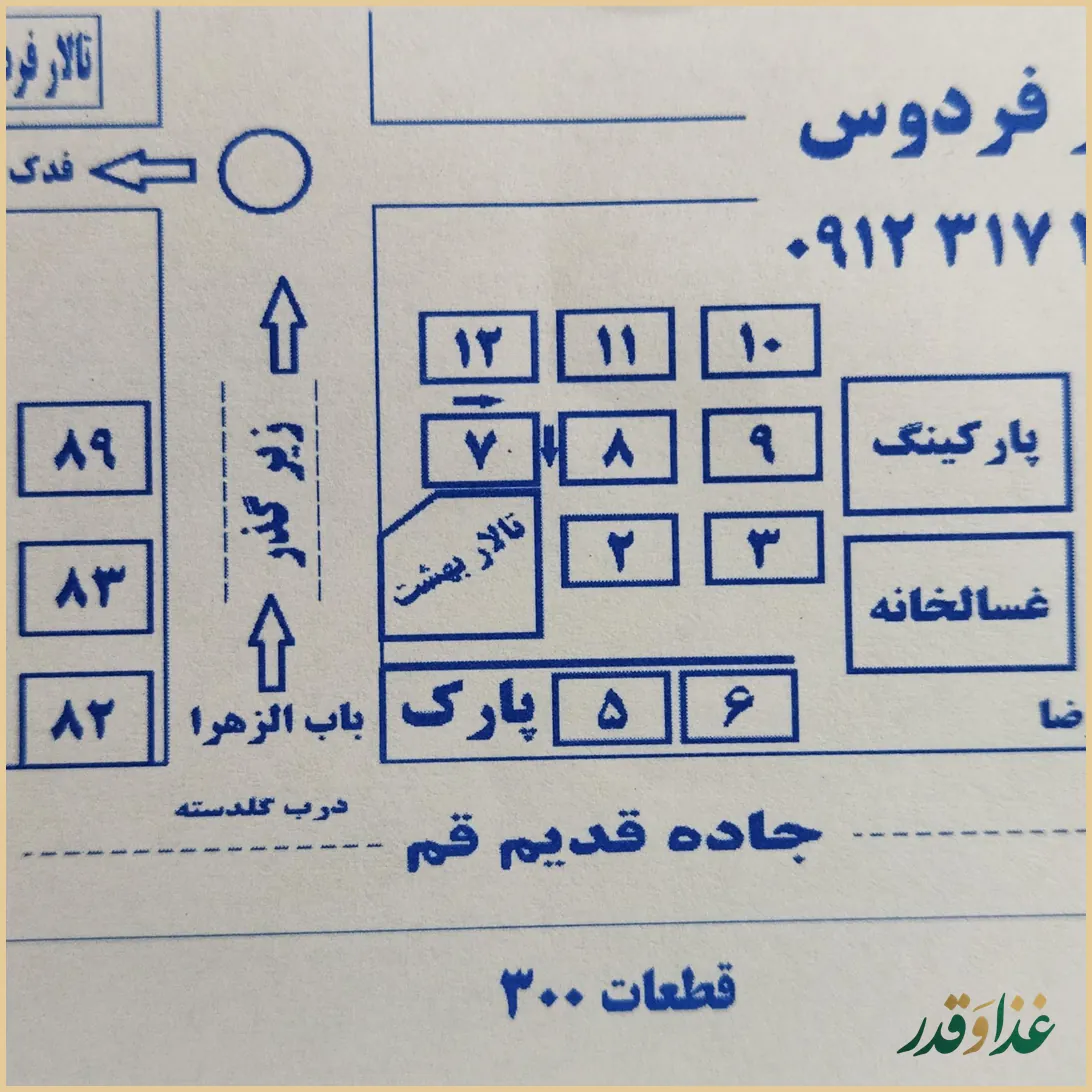 فردوس
۰۹۱۲ ۳۱۷
تالار
فدک
۱۰
۱۱
۱۲
پارکینگ
۹
۸
۷
۸۹
زیر گذر
۳
۲
تالار بهشت
غسالخانه
۸۳
۶
۵
پارک
باب الزهرا
۸۲
درب گلدسته
جاده قدیم قم
قطعات ۳۰۰
غذا و قدر